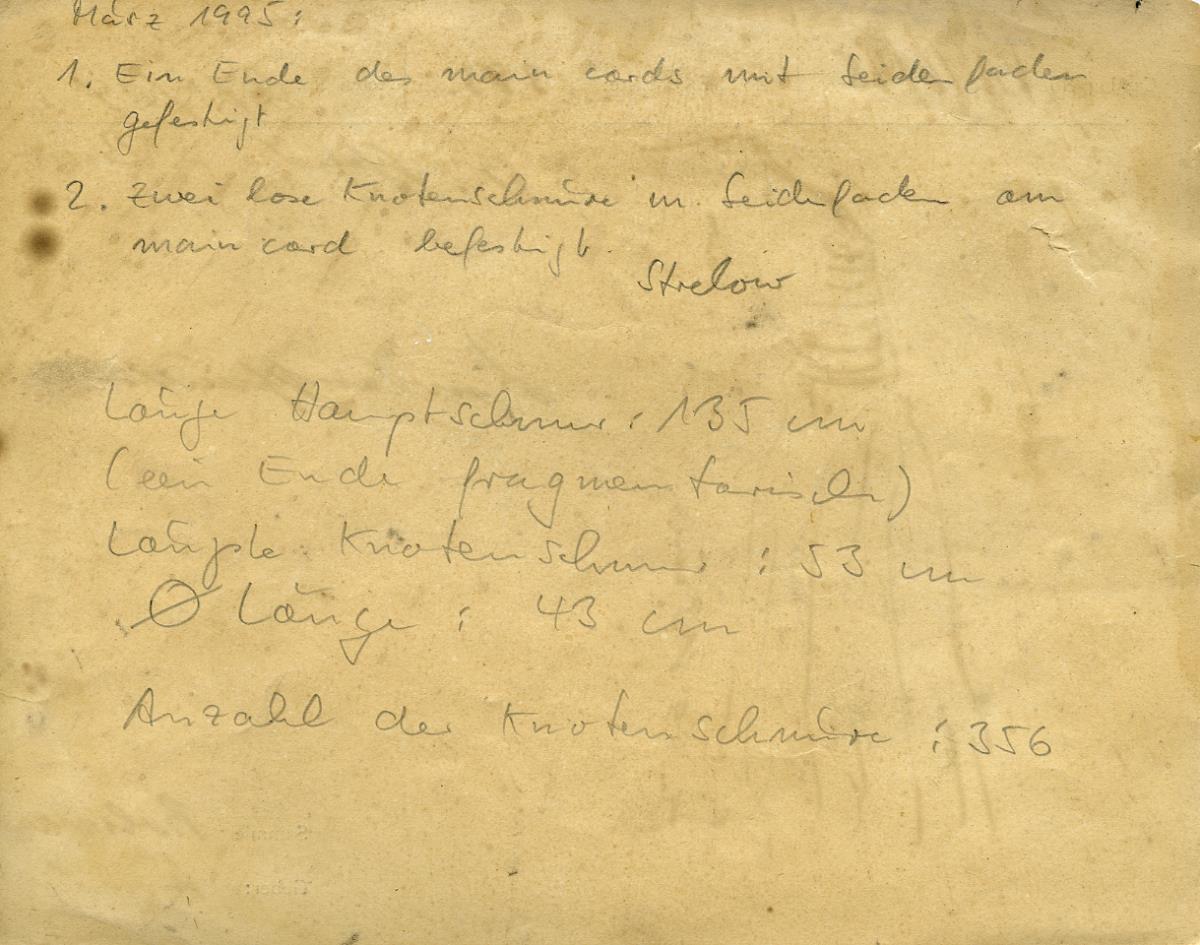 März 1995:
1. Ein Ende des main cords mit Seidenfaden
gefestigt
2. Zwei lose Knotenschnüre m. Seidenfaden am
main cord befestigt.
Strelow
Länge Hauptschnur: 135 cm
(ein Ende fragmentarisch)
Längste Knotenschnur: 53 cm
Ø Länge: 43 cm
Anzahl der Knotenschnüre: 356